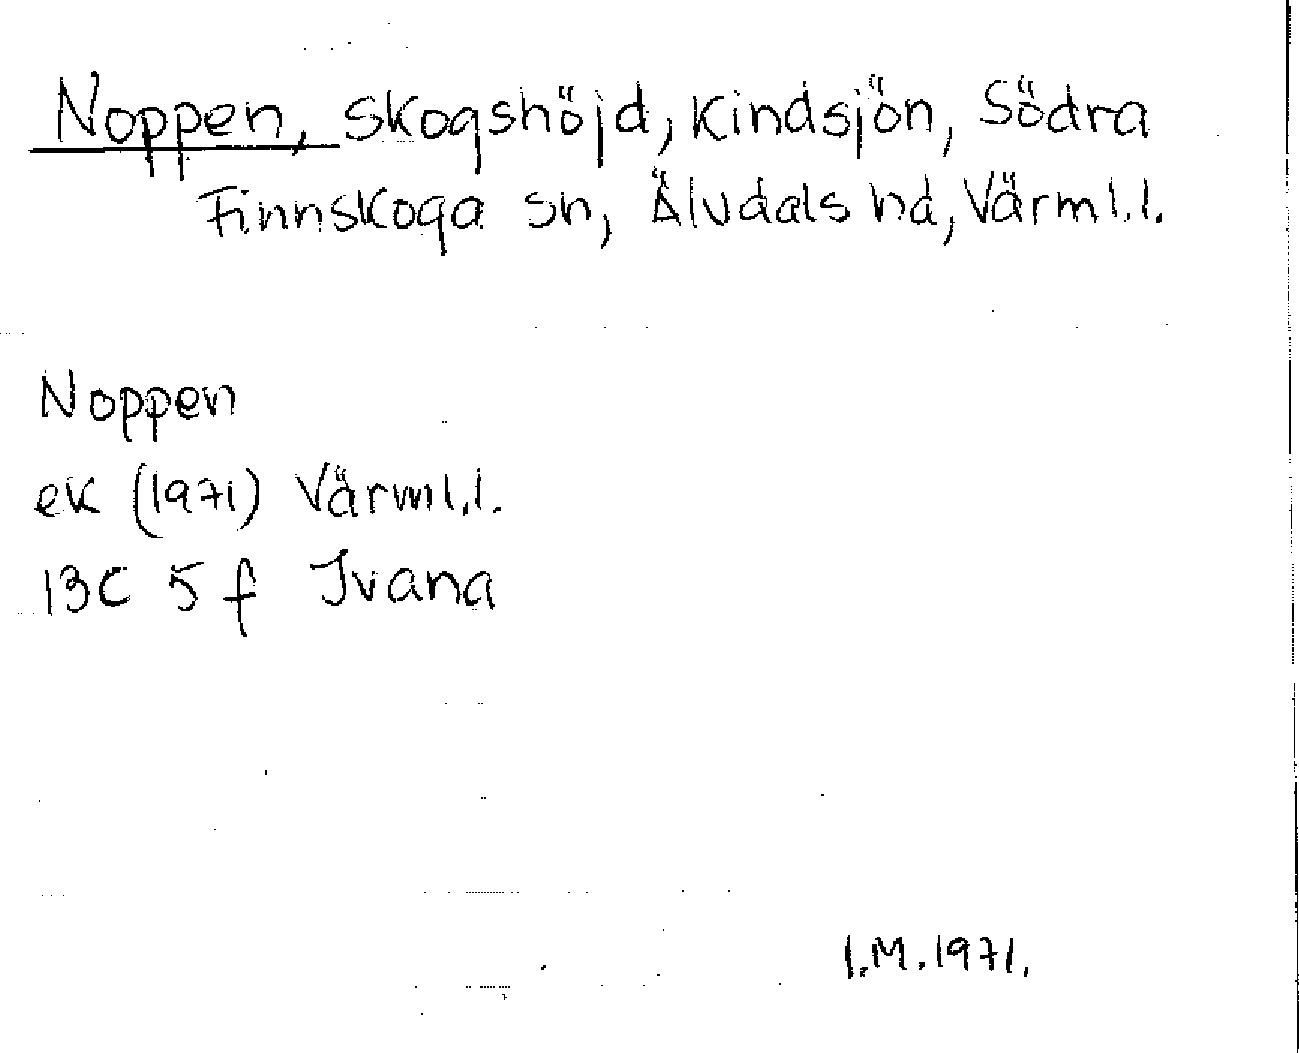 Noppen, skogshöjd, Kindsjön, Södra
Finnskoga sn, Älvdals hd, Värml.l.
Noppen
ek (1971) Värml.l.
13C 5 f Ivana
I.M.1971.